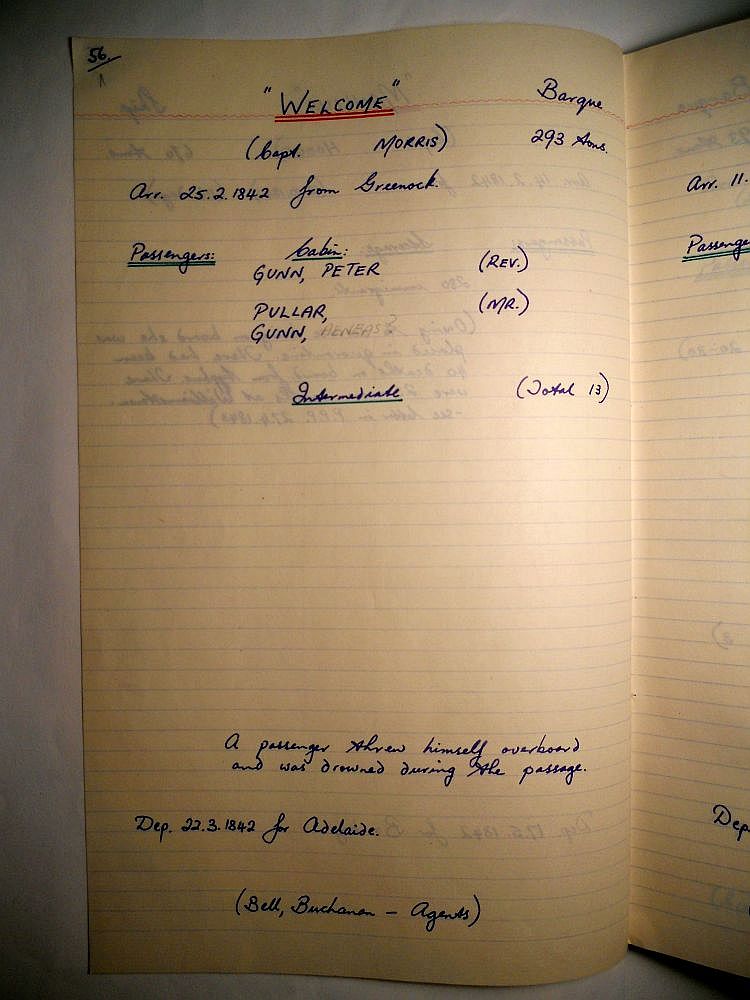 56.
"WELCOME" Barque
(Capt. MORRIS) 293 tons.
Arr. 25.2.1842 from Greenock.
Passengers: Cabin:
GUNN, PETER (REV.)
PULLAR, (MR.)
GUNN, AENEAS?
Intermediate (Total 13)
A passenger threw himself overboard
and was drowned during the passage.
Dep. 22.3.1842 for Adelaide.
(Bell, Buchanan - Agents)
Arr. 11.
Passenge
Dep